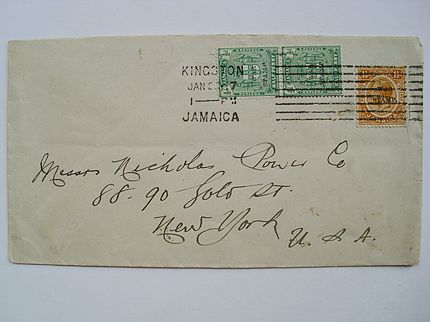 KINGSTON
JAMAICA
Messrs Nicholas Power Co
88-90 Gold St.
New York
U. S. A.